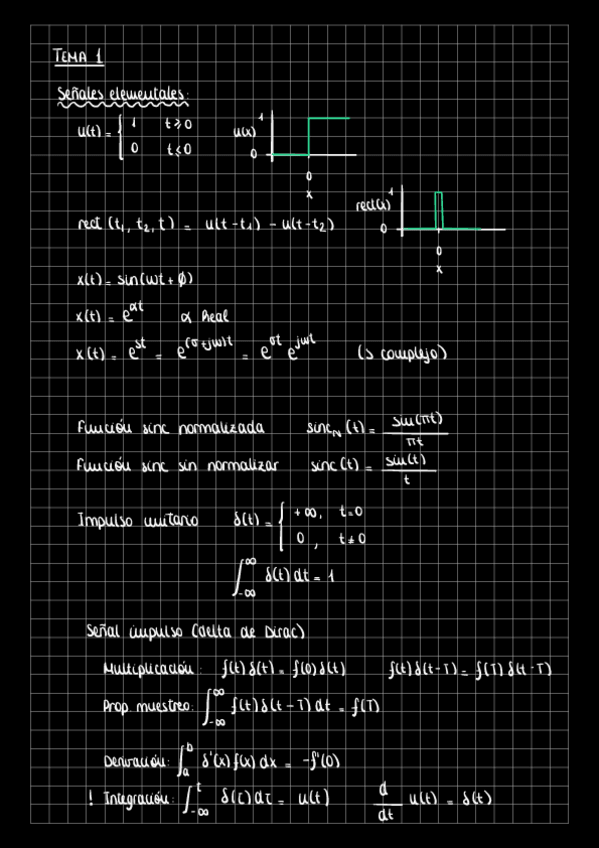 TEMA 1
Señales elementales:
u(t) = { 1 t ≥ 0
0 t ≤ 0
u(x) 1 0 0 x
rect(x) 1 0 0 x
rect (t₁, t₂, t) = u(t-t₁) - u(t-t₂)
x(t) = sin(ωt + ϕ)
x(t) = e^{αt} α Real
x(t) = e^{st} = e^{(σ+jω)t} = e^{σt} e^{jωt} (s complejo)
Función sinc normalizada sinc_N (t) = sin(πt) / πt
Función sinc sin normalizar sinc (t) = sin(t) / t
Impulso unitario δ(t) = { +∞, t=0
0 , t≠0
∫_{-∞}^{∞} δ(t) dt = 1
Señal impulso (delta de Dirac)
Multiplicación: f(t) δ(t) = f(0) δ(t) f(t) δ(t-T) = f(T) δ(t-T)
Prop. muestreo: ∫_{-∞}^{∞} f(t) δ(t-T) dt = f(T)
Derivación: ∫_a^b δ'(x) f(x) dx = -f'(0)
! Integración: ∫_{-∞}^{t} δ(τ) dτ = u(t) d/dt u(t) = δ(t)